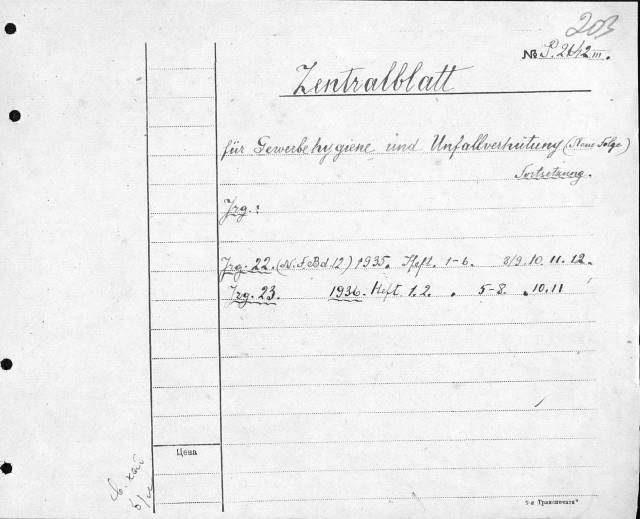 203
№ P. 2642 III.
Zentralblatt
für Gewerbehygiene und Unfallverhütung (Neue Folge)
Fortsetzung.
Jrg.:
Jrg. 22. (N.F. Bd. 12) 1935. Heft. 1-6. 8/9. 10. 11. 12.
Jrg. 23. 1936. Heft. 1. 2. 5-8. 10. 11
Цена